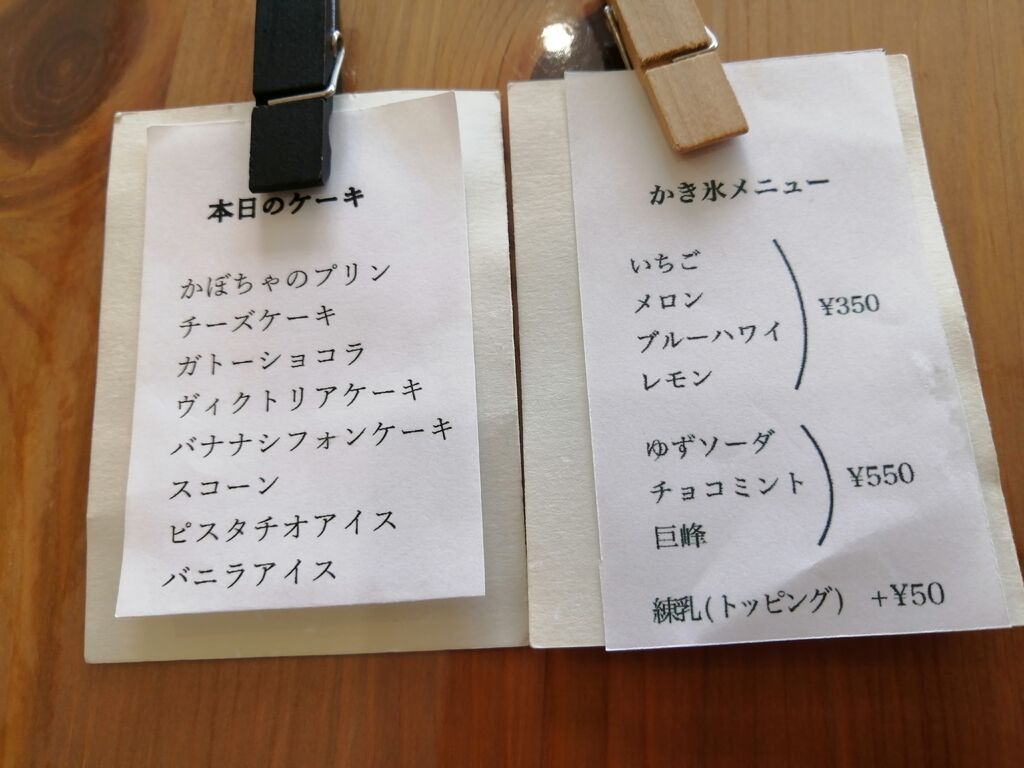 本日のケーキ
かぼちゃのプリン
チーズケーキ
ガトーショコラ
ヴィクトリアケーキ
バナナシフォンケーキ
スコーン
ピスタチオアイス
バニラアイス
かき氷メニュー
いちご
メロン
ブルーハワイ
レモン
¥350
ゆずソーダ
チョコミント
巨峰
¥550
練乳(トッピング) +¥50